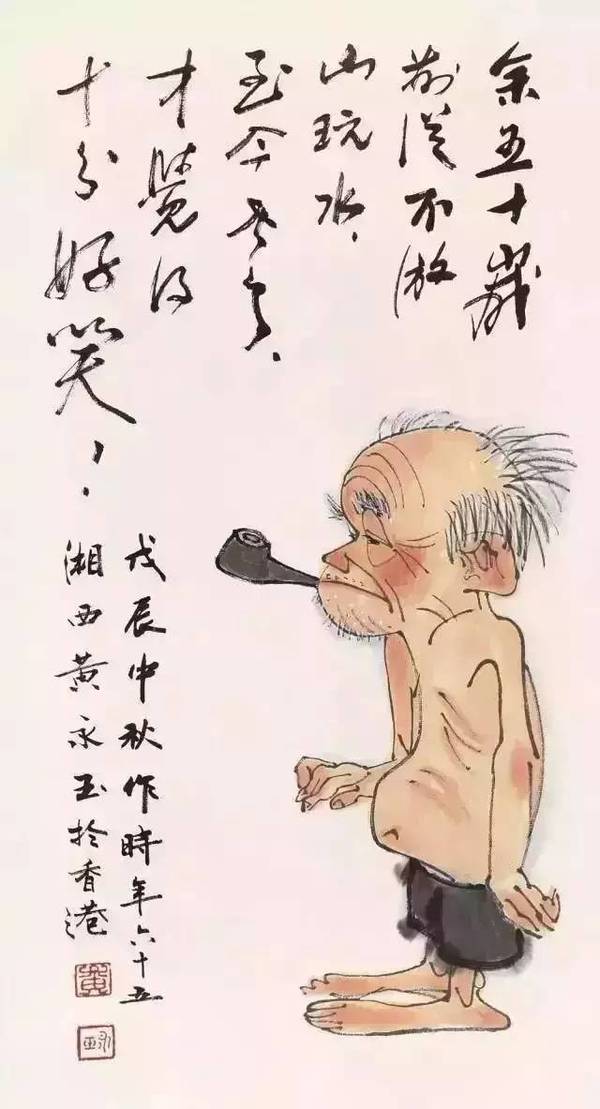 余五十歲
前從不游
山玩水、
至今老了、
才覺得
十分好笑！
戊辰中秋作時年六十五
湘西黃永玉扵香港
黃
永玉